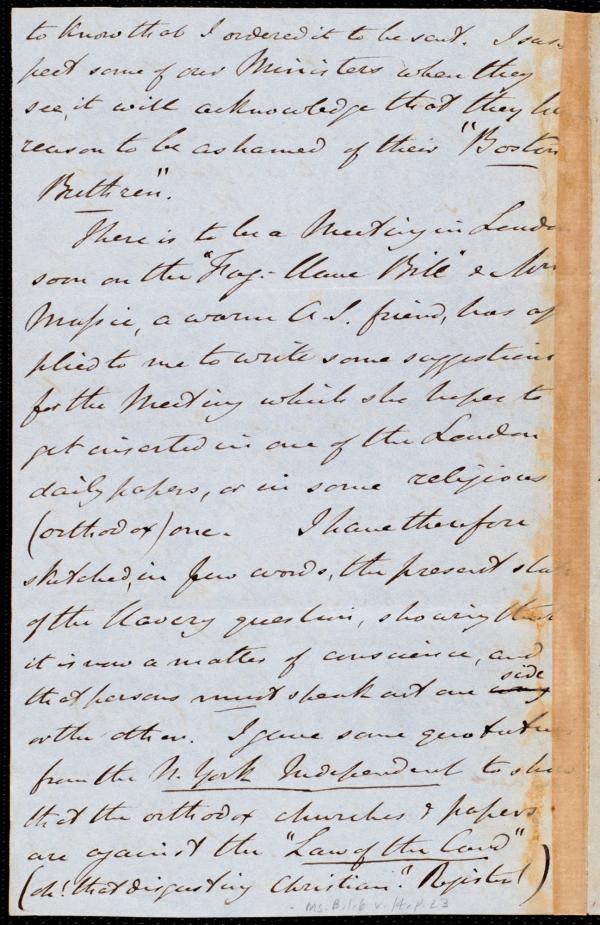 to know that I ordered it to be sent. I sus-
pect some of our Ministers when they
see, it will acknowledge that they ha
reason to be ashamed of their "Boston
Brethren".
There is to be a Meeting in London
soon on the "Fug. Slave Bill" & Mrs
Massie, a warm A.S. friend, has ap
plied to me to write some suggestions
for the Meeting which she hopes to
get inserted in one of the London
daily papers, or in some religious
(orthodox) one. I have therefore
sketched, in few words, the present state
of the slavery question, showing that
it is now a matter of conscience, and
that persons must speak out one side
or the other. I gave some quotations
from the N. York Independent to show
that the orthodox churches & papers
are against the "Law of the Land"
(oh! that disgusting Christian". Register!)
Ms. B.1.6 v.14, p.23